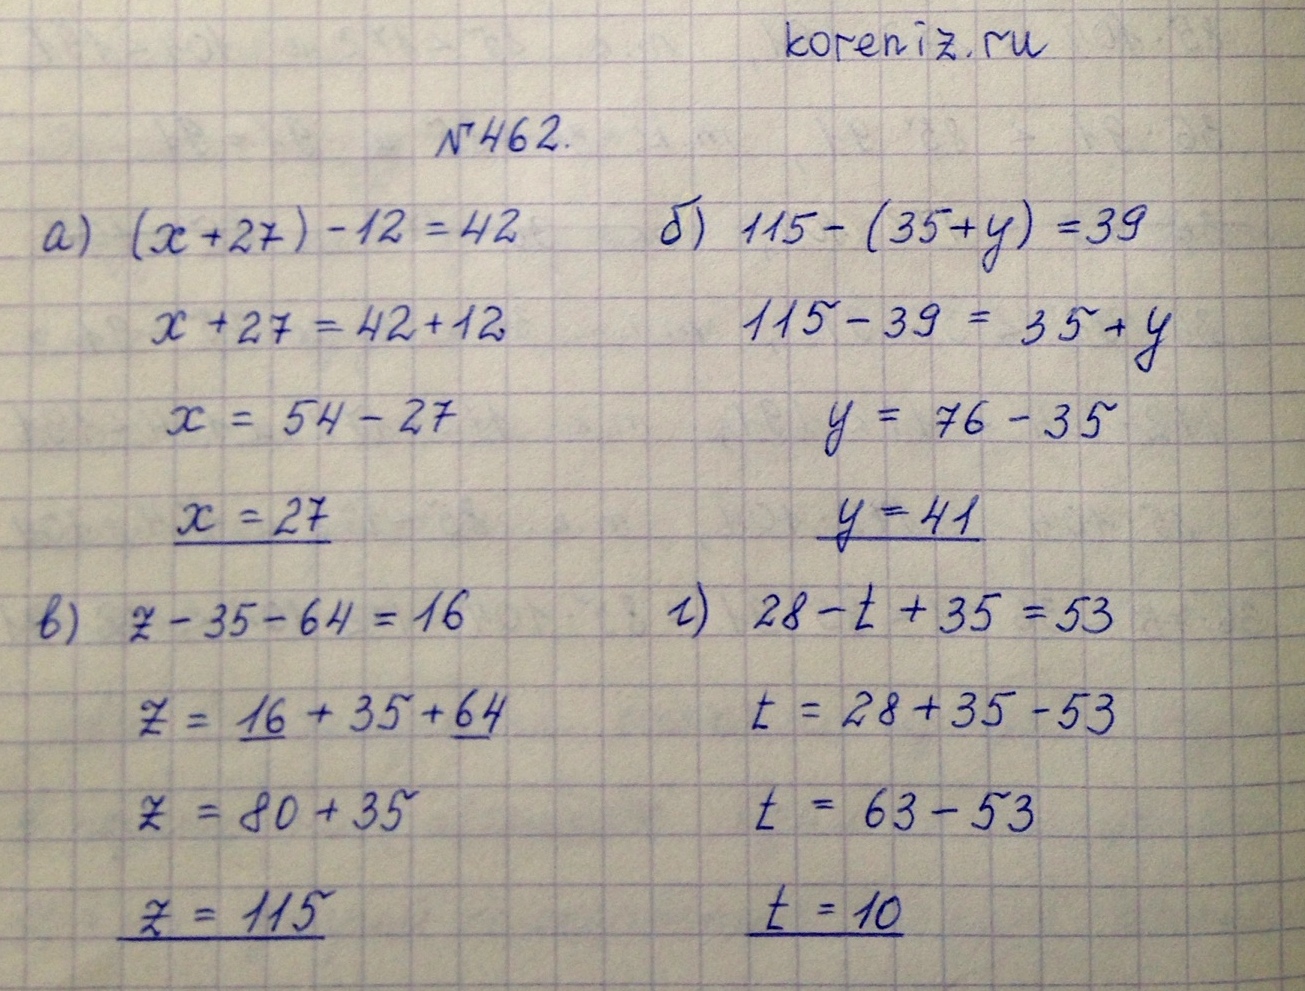 koreniz.ru
№462.
а) (x+27)-12=42
x+27=42+12
x = 54-27
x = 27
б) 115-(35+y)=39
115-39 = 35+y
y = 76-35
y = 41
в) z-35-64=16
z = 16+35+64
z = 80+35
z = 115
г) 28-t+35=53
t = 28+35-53
t = 63-53
t = 10